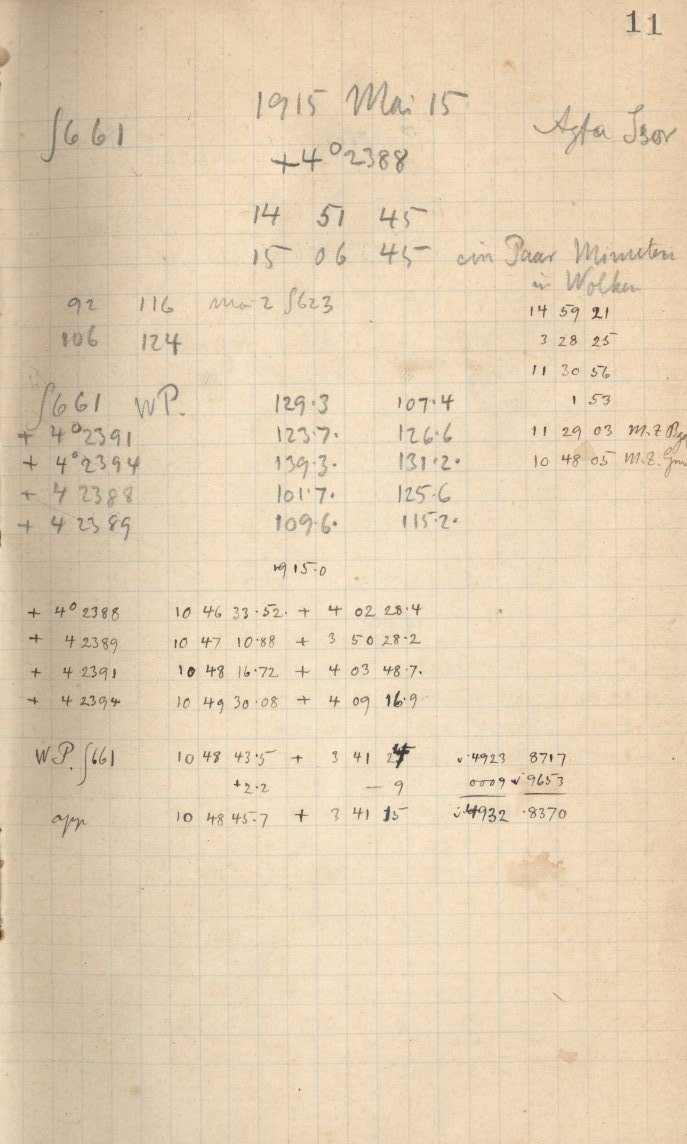 11
1915 Mai 15
∫661 Agfa Isor
+4°2388
14 51 45
15 06 45 ein Paar Minuten
in Wolken
92 116 Mai 2 ∫623 14 59 21
106 124 3 28 25
11 30 56
∫661 WP. 129.3 107.4 1 53
+ 4°2391 123.7. 126.6 11 29 03 M.Z.
+ 4°2394 139.3. 131.2. 10 48 05 M.Z.
+ 4 2388 101.7. 125.6
+ 4 2389 109.6. 115.2.
1915.0
+ 4°2388 10 46 33.52. + 4 02 28.4
+ 4 2389 10 47 10.88 + 3 50 28.2
+ 4 2391 10 48 16.72 + 4 03 48.7.
+ 4 2394 10 49 30.08 + 4 09 16.9
WP. ∫661 10 48 43.5 + 3 41 24 .4923 8717
+2.2 — 9 0009 9653
app 10 48 45.7 + 3 41 15 .4932 .8370